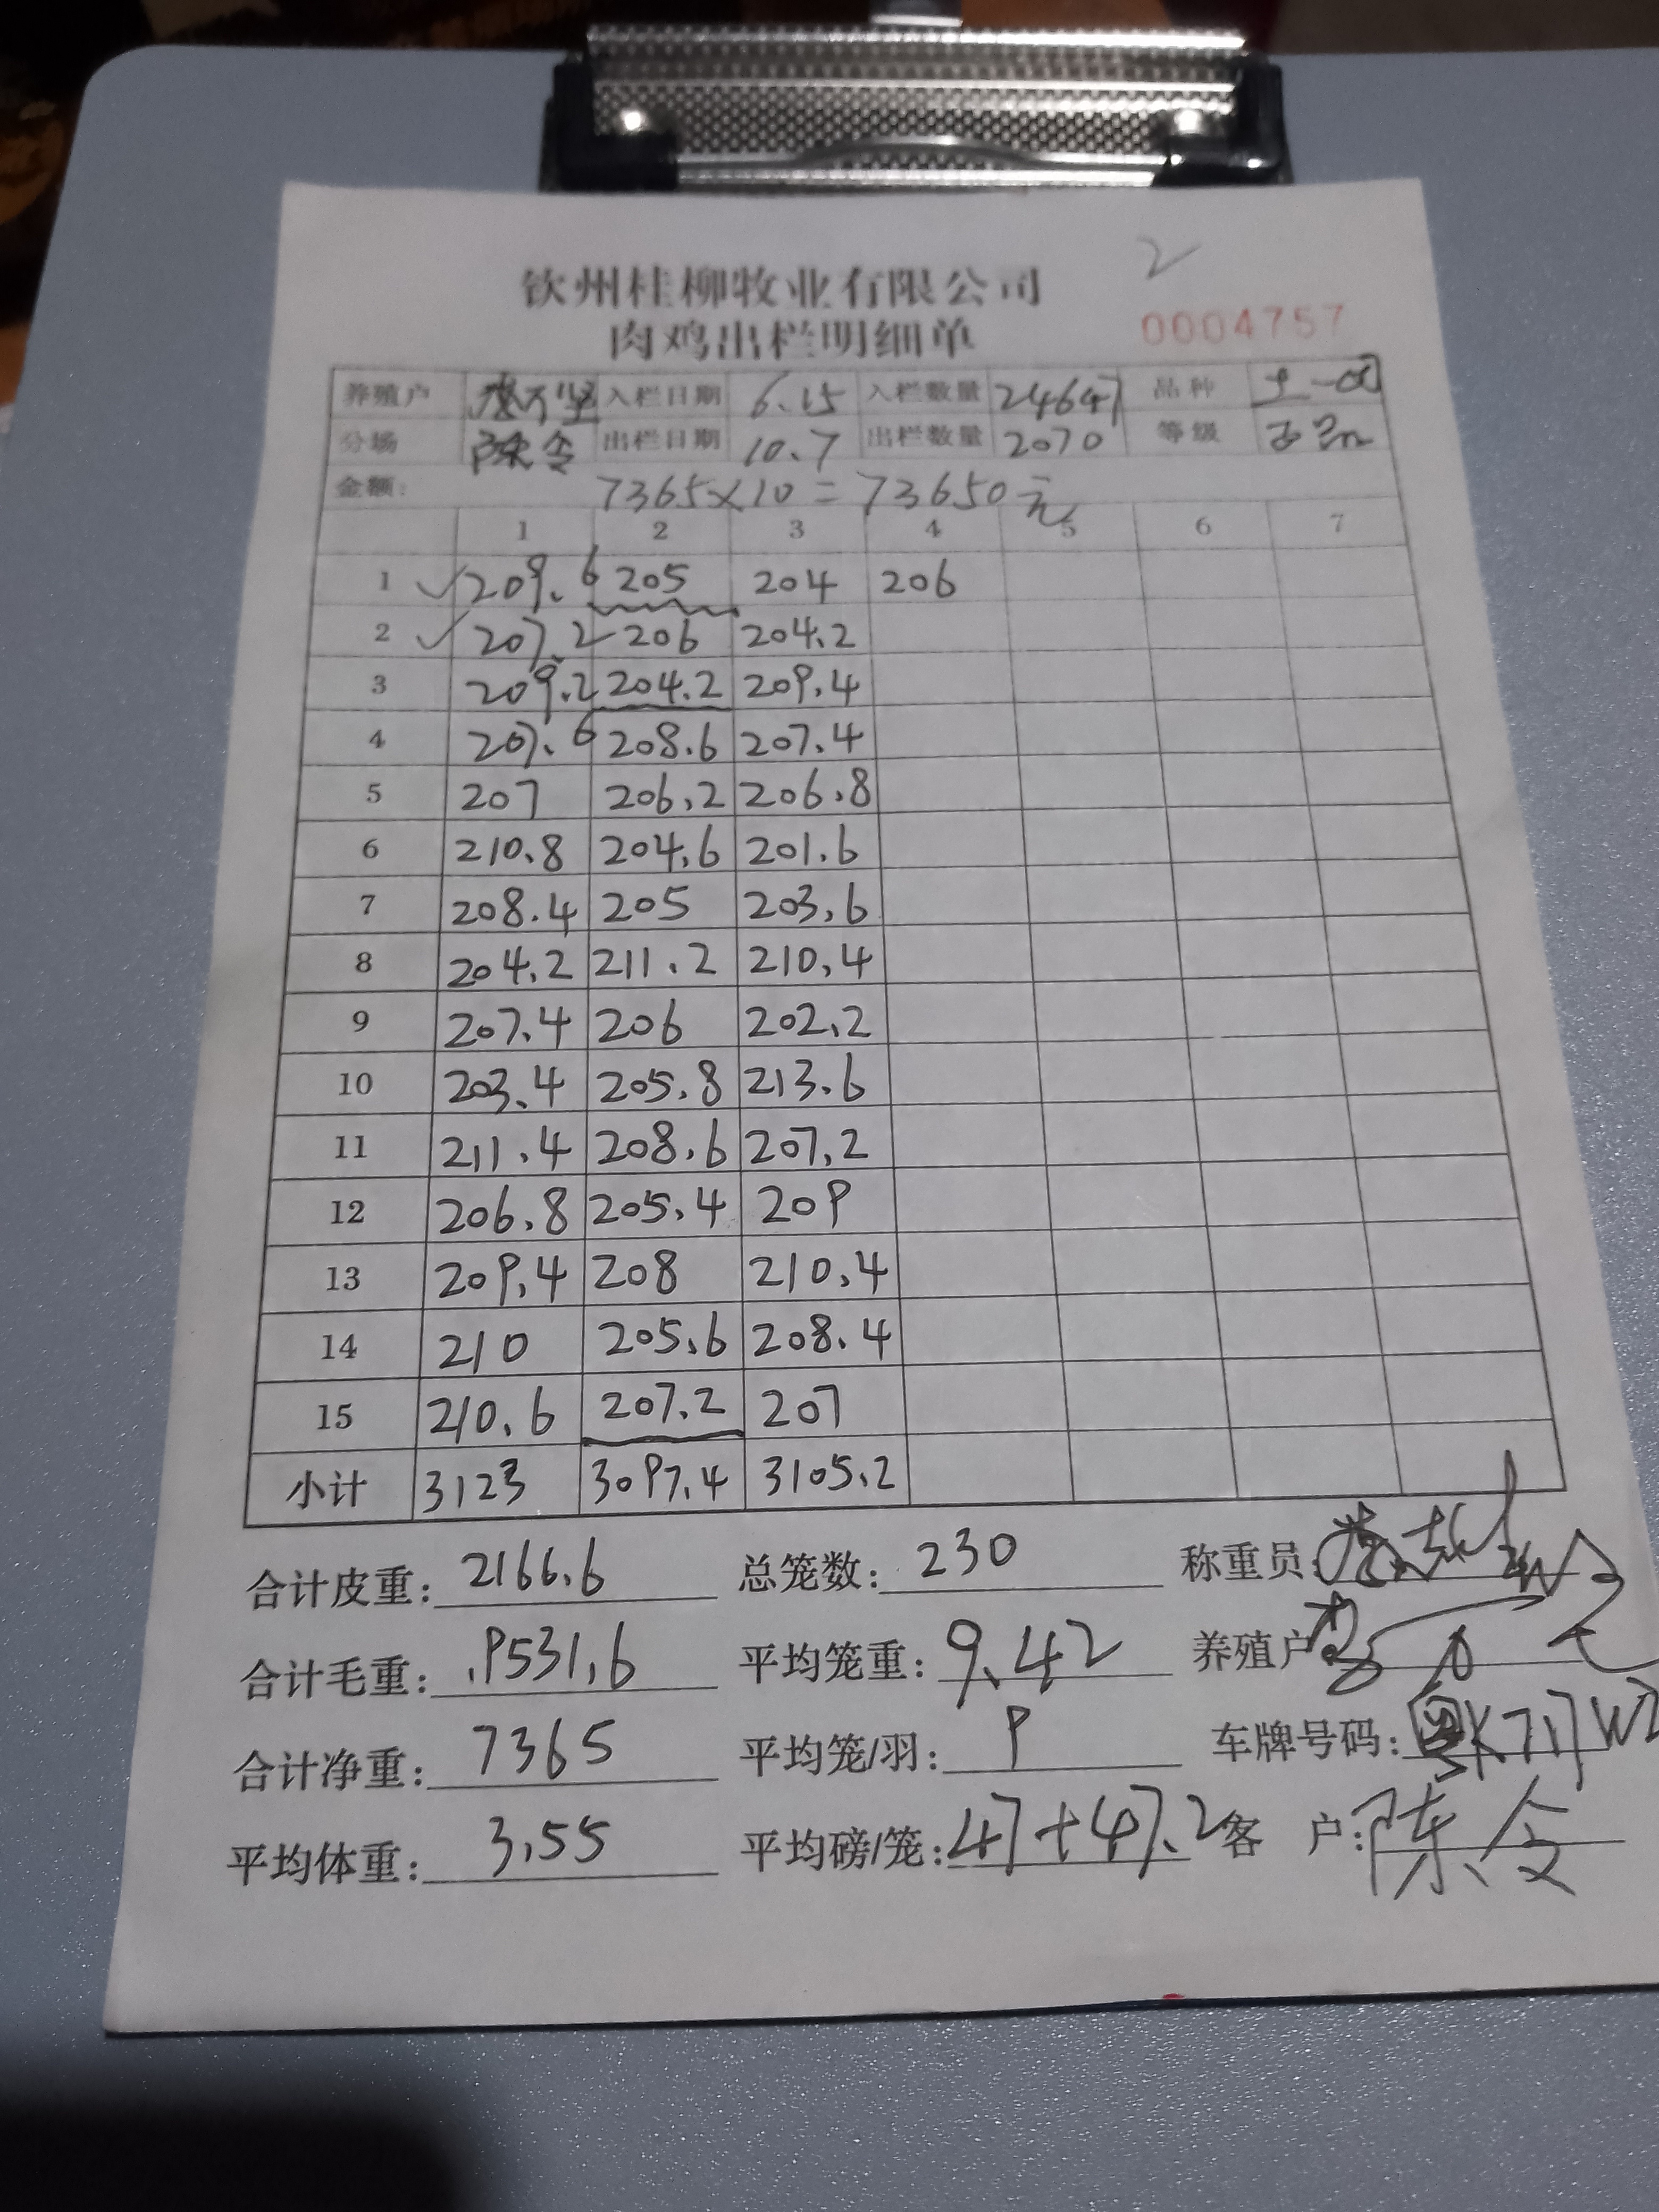 2
钦州桂柳牧业有限公司
肉鸡出栏明细单
0004757
养殖户 入栏日期 6.15 入栏数量 24647 品种 土一
分场 陈令 出栏日期 10.7 出栏数量 2070 等级
金额: 7365×10=73650元
1 2 3 4 5 6 7
1 ✓ 209.6 205 204 206
2 ✓ 207.2 206 204.2
3 209.2 204.2 209.4
4 207.6 208.6 207.4
5 207 206.2 206.8
6 210.8 204.6 201.6
7 208.4 205 203.6
8 204.2 211.2 210.4
9 207.4 206 202.2
10 203.4 205.8 213.6
11 211.4 208.6 207.2
12 206.8 205.4 209
13 209.4 208 210.4
14 210 205.6 208.4
15 210.6 207.2 207
小计 3123 3097.4 3105.2
合计皮重: 2166.6 总笼数: 230 称重员:
合计毛重: 9531.6 平均笼重: 9.42 养殖户
合计净重: 7365 平均笼/羽: 9 车牌号码:
平均体重: 3.55 平均磅/笼: 47+47.2 客 户: 陈令